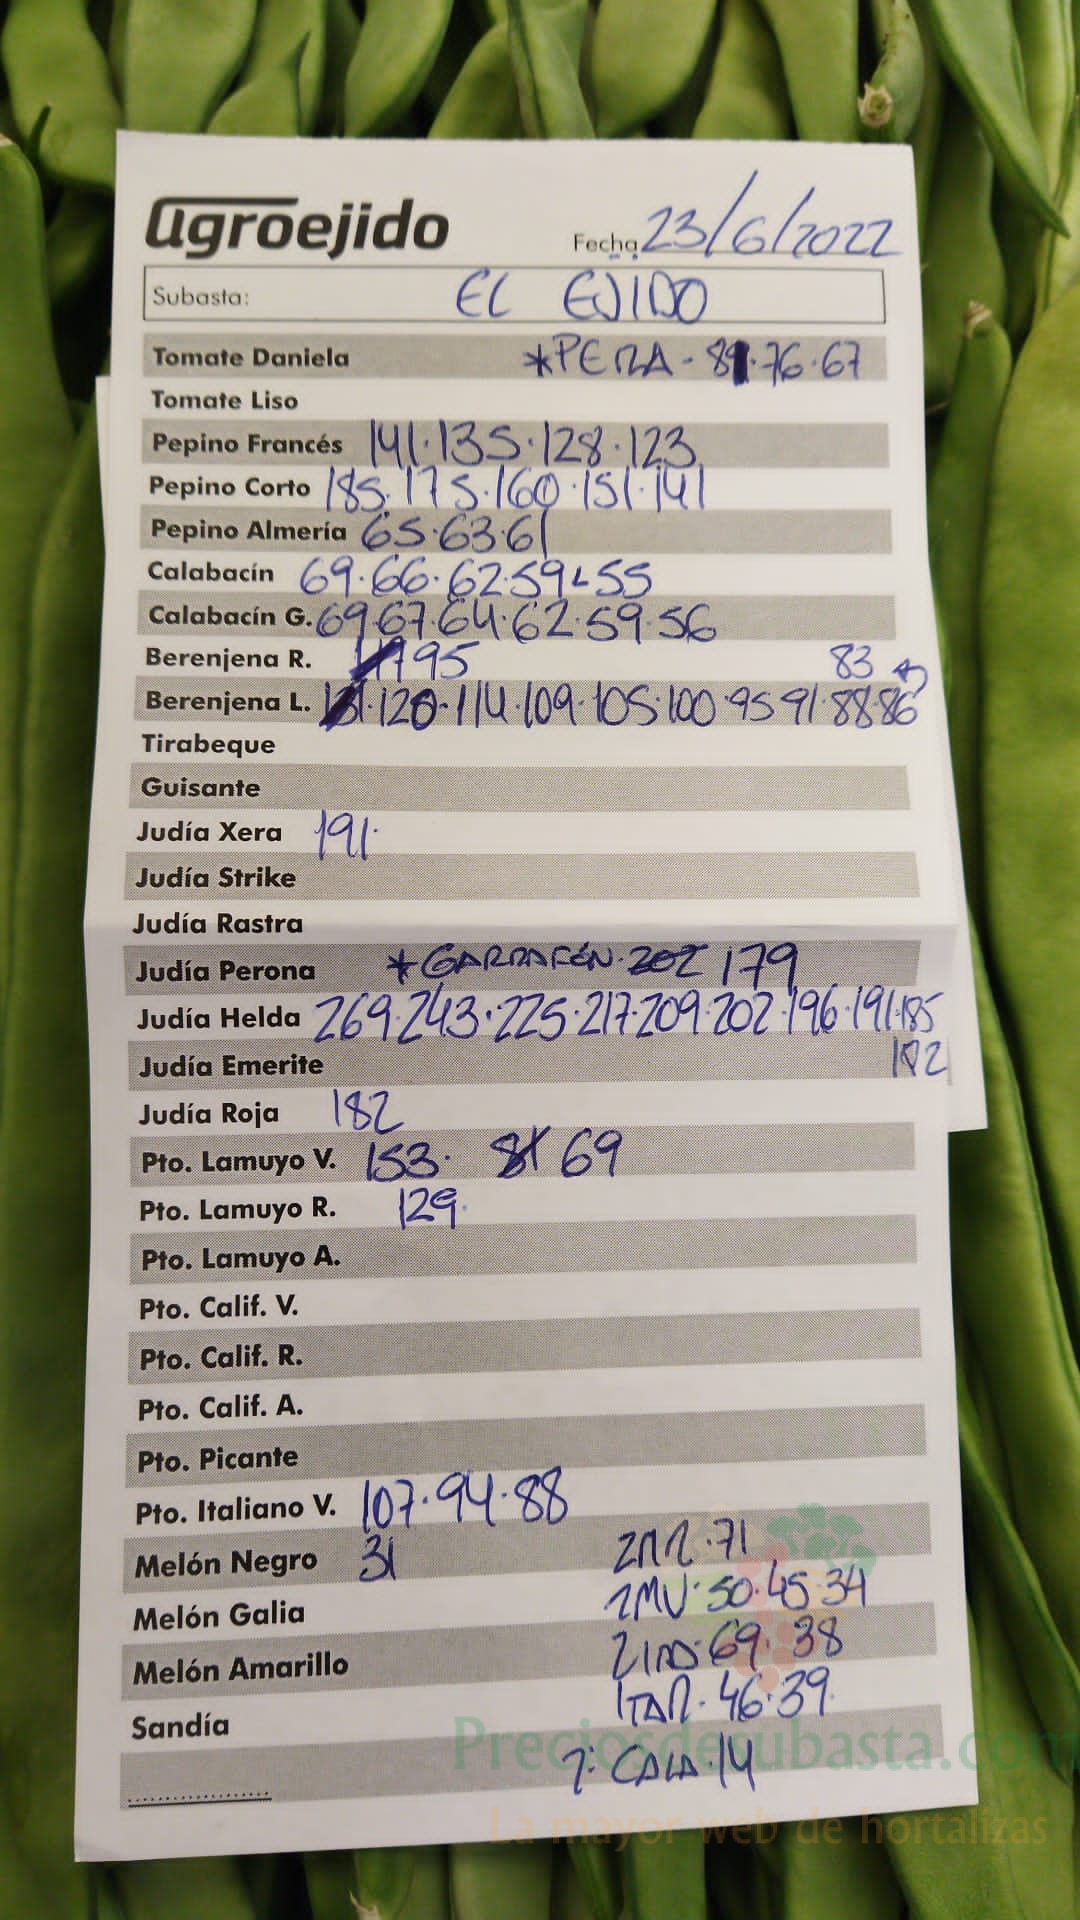 agroejido
Fecha 23/6/2022
Subasta: EL EJIDO
Tomate Daniela *PERA - 81·76·67
Tomate Liso
Pepino Francés 141·135·128·123
Pepino Corto 185·175·160·151·141
Pepino Almería 65·63·61
Calabacín 69·66·62·59·55
Calabacín G. 69·67·64·62·59·56
Berenjena R. 95 83
Berenjena L. 131·120·114·109·105·100·95·91·88·86
Tirabeque
Guisante
Judía Xera 191·
Judía Strike
Judía Rastra
Judía Perona *GARRAFÓN· 202 179
Judía Helda 269·243·225·217·209·202·196·191·185
Judía Emerite 182
Judía Roja 182
Pto. Lamuyo V. 153· 81 69
Pto. Lamuyo R. 129·
Pto. Lamuyo A.
Pto. Calif. V.
Pto. Calif. R.
Pto. Calif. A.
Pto. Picante
Pto. Italiano V. 107·94·88
Melón Negro 31 2RR·71
Melón Galia 50·45·34
Melón Amarillo 69·38
46·39·
Sandía
CALA·14
Preciosdesubasta.com
La mayor web de hortalizas